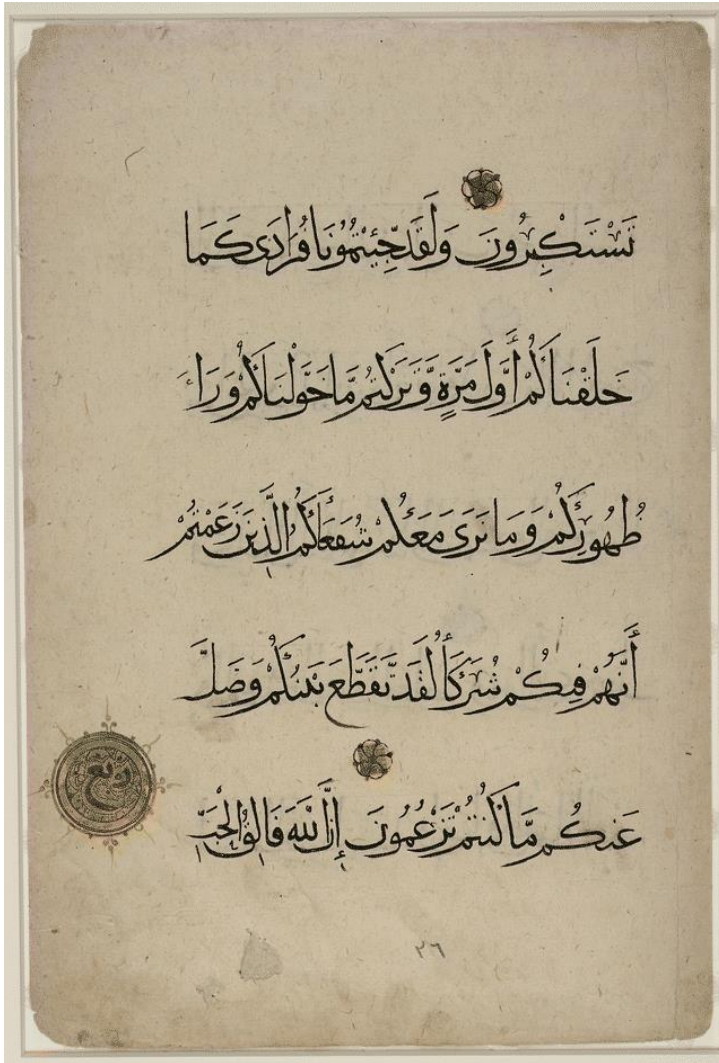 تَسْتَكْبِرُونَ وَلَقَد جِّئْتُمُونَا فُرَادَى كَمَا
خَلَقْنَاكُمْ أَوَّلَ مَرَّةٍ وَّتَرَكْتُم مَّا خَوَّلْنَاكُمْ وَرَاءَ
ظُهُورِكُمْ وَمَا نَرَى مَعَكُمْ شُفَعَاءَكُمُ الَّذِينَ زَعَمْتُمْ
أَنَّهُمْ فِيكُمْ شُرَكَاءُ لَقَد تَّقَطَّعَ بَيْنَكُمْ وَضَلَّ
عَنكُم مَّا كُنتُمْ تَزْعُمُونَ إِنَّ اللَّهَ فَالِقُ الْحَبِّ
٢٦